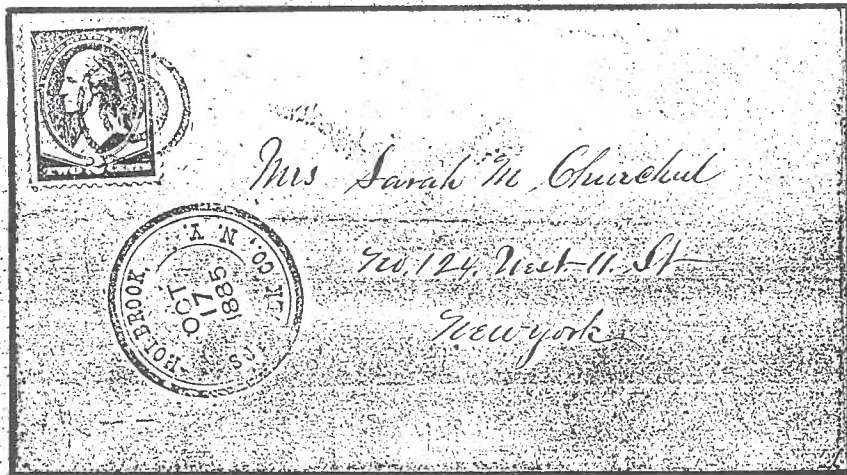 TWO CENTS
Mrs Sarah M, Churchul
No. 124. West 11. St
New york
HOLBROOK, SUFFK CO., N.Y.
OCT
17
1885